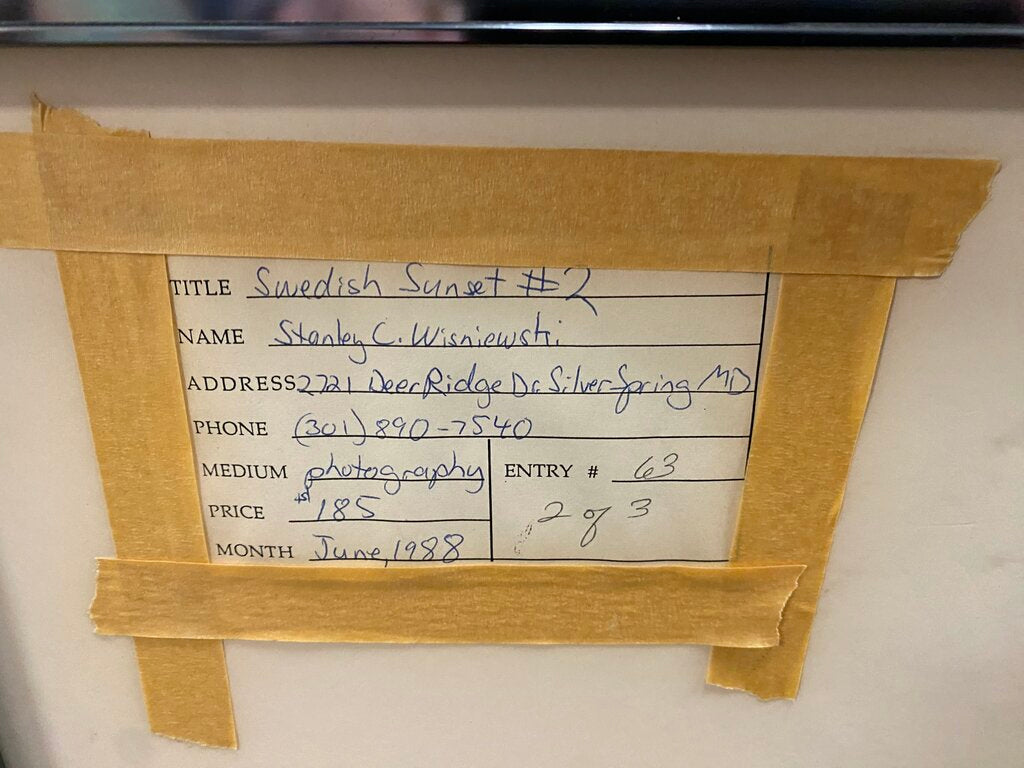 TITLE Swedish Sunset #2
NAME Stanley C. Wisniewski
ADDRESS 2721 Deer Ridge Dr Silver Spring MD
PHONE (301) 890-7540
MEDIUM photography
ENTRY # 63
PRICE $185
2 of 3
MONTH June, 1988